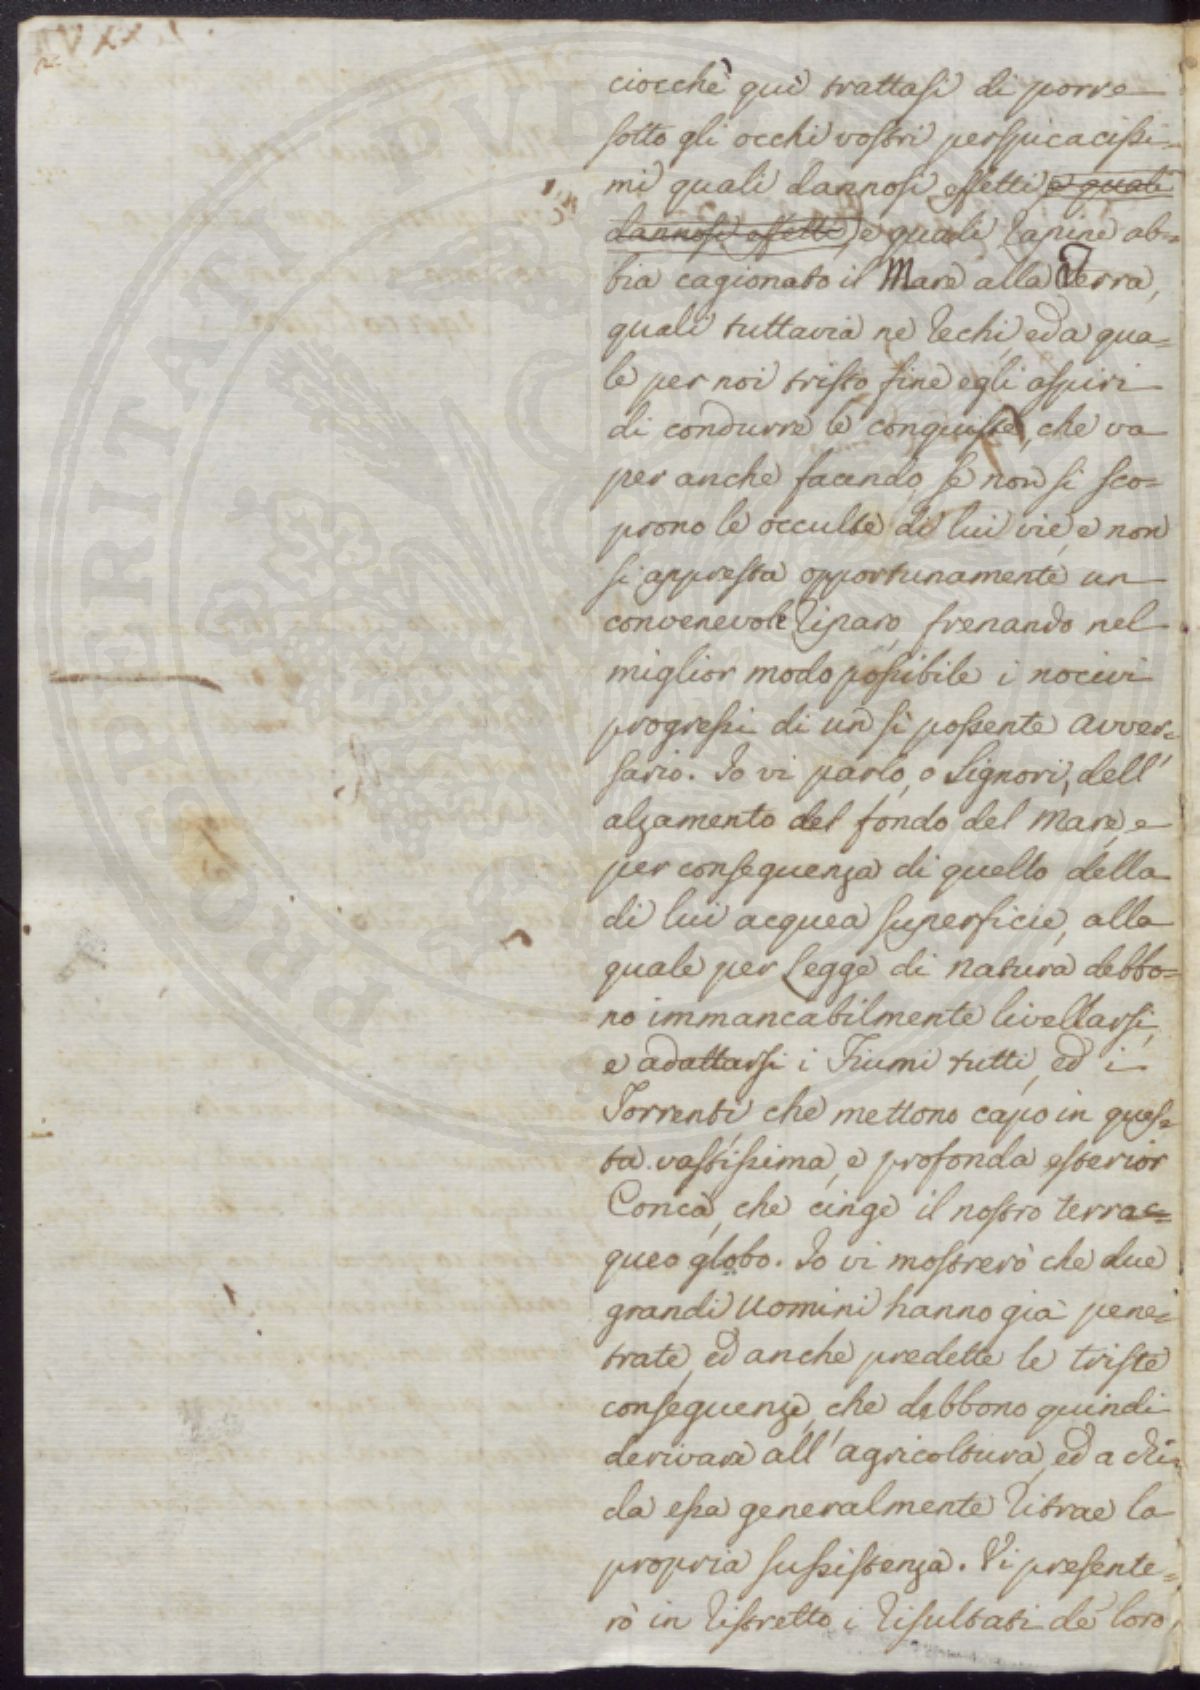 ciocchè quì trattasi di porre
sotto gli occhi vostri perspicacissi-
mi quali dannosi effetti e quali
dannosi effetti, e quali rapine ab=
bia cagionato il Mare alla Terra,
quali tuttavia ne rechi, ed a qua=
le per noi tristo fine egli aspiri
di condurre le conquiste, che va
per anche facendo, se non si sco=
prono le occulte di lui vie, e non
si appresta opportunamente un
convenevole riparo, frenando nel
miglior modo possibile i nocivi
progressi di un sì possente avver=
sario. Io vi parlo, o Signori, dell'
alzamento del fondo del Mare, e
per conseguenza di quello della
di lui acquea superficie, alla
quale per Legge di natura debbo=
no immancabilmente livellarsi,
e adattarsi i Fiumi tutti, ed i
Torrenti che mettono capo in ques=
ta vastissima, e profonda esterior
Conca, che cinge il nostro terrac=
queo globo. Io vi mostrerò che due
grandi Uomini hanno già pene=
trate, ed anche predette le triste
conseguenze, che debbono quindi
derivare all'agricoltura, ed a chi=
da essa generalmente ritrae la
propria sussistenza. Vi presente=
rò in ristretto i risultati de' loro
PROSPERITATI PVB